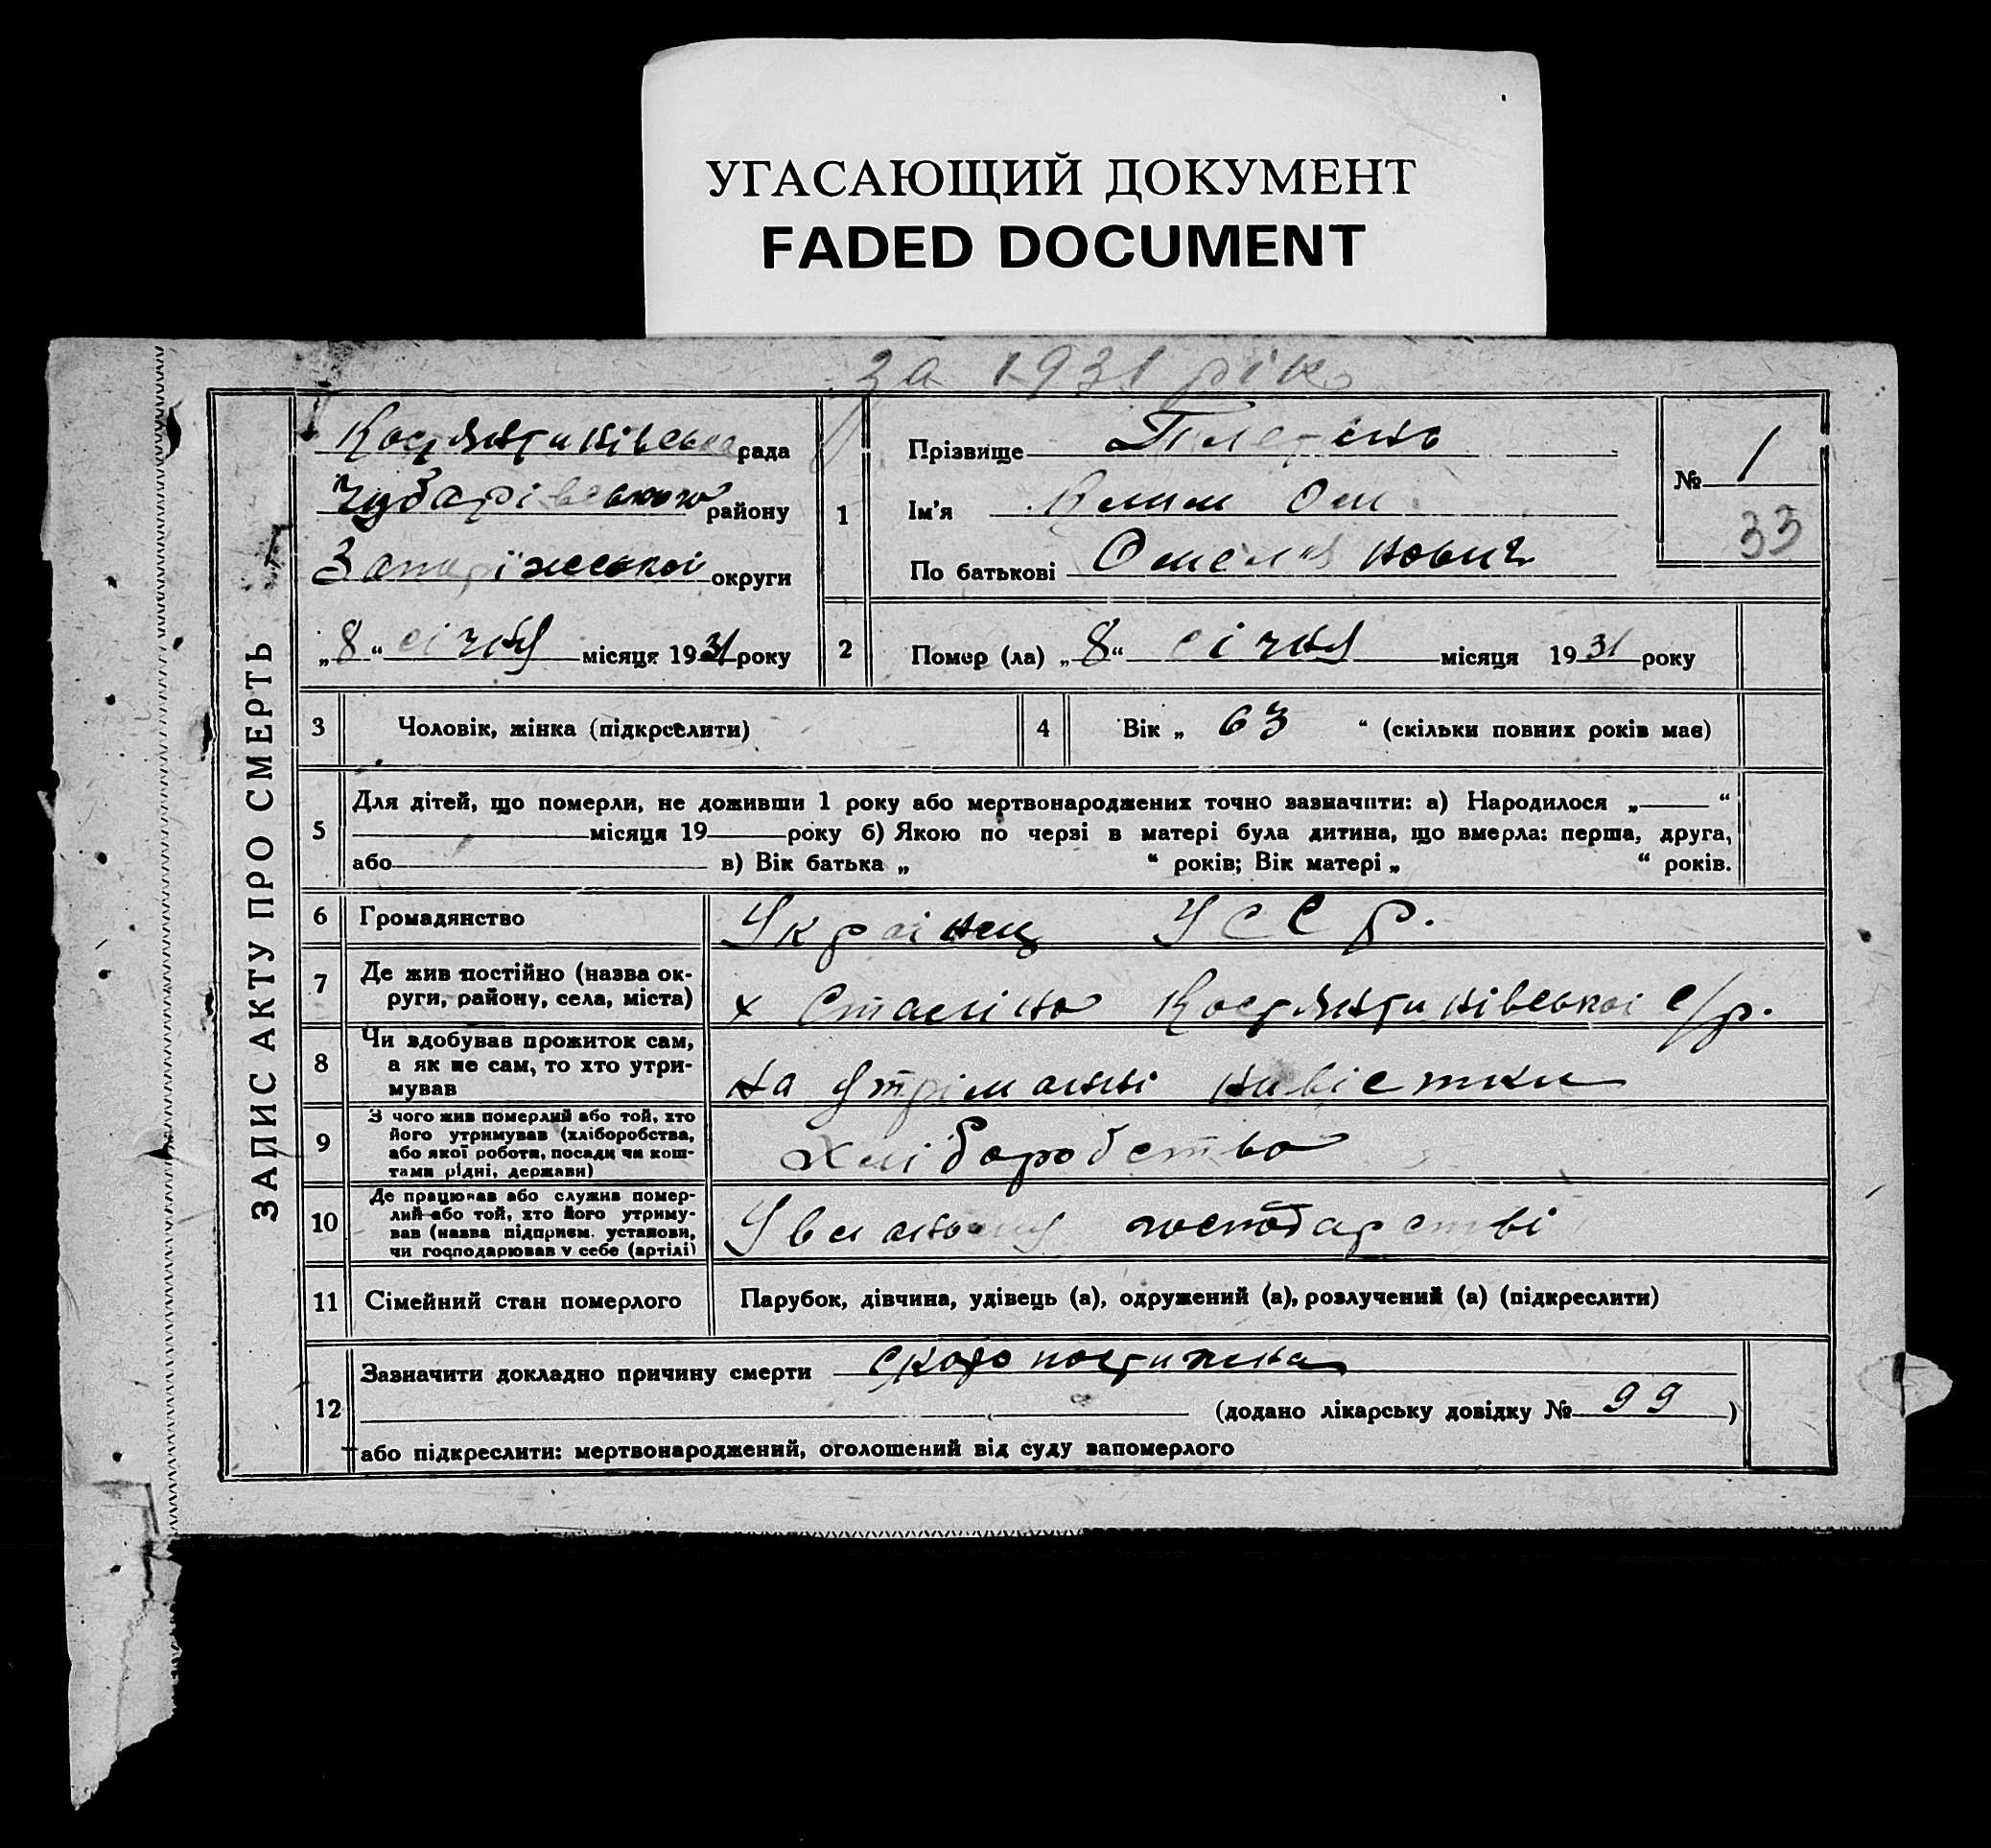 УГАСАЮЩИЙ ДОКУМЕНТ
FADED DOCUMENT
за 1931 рік
ЗАПИС АКТУ ПРО СМЕРТЬ
Костянтинівська рада
Чубарівського району
Запоріжської округи
„8“ січня місяця 1931 року
1
Прізвище
Ім'я Клим Ом
По батькові Омелянович
№ 1
33
2 Помер (ла) „8“ січня місяця 1931 року
3 Чоловік, жінка (підкрселити)
4 Вік „ 63 “ (скільки повних років має)
5 Для дітей, що померли, не доживши 1 року або мертвонароджених точно зазначити: а) Народилося „ “
місяця 19 року б) Якою по черзі в матері була дитина, що вмерла: перша, друга,
або в) Вік батька „ “ років; Вік матері „ “ років.
6 Громадянство Украінец УССР.
7 Де жив постійно (назва ок-
руги, району, села, міста)
х Сталіно Костянтинівської с/р.
8 Чи здобував прожиток сам,
а як не сам, то хто утри-
мував
на утріманні нивістки
9 З чого жив померлий або той, хто
його утримував (хліборобства,
або якої роботи, посади чи кош-
тами рідні, держави)
Хліборобство
10 Де працював або служив помер-
лий або той, хто його утриму-
вав (назва підприєм. установи,
чи господарював у себе (артілі)
У власному господарстві
11 Сімейний стан померлого Парубок, дівчина, удівець (а), одружений (а), розлучений (а) (підкреслити)
12 Зазначити докладно причину смерти скоропостижна
(додано лікарську довідку № 99 )
або підкреслити: мертвонароджений, оголошений від суду запомерлого